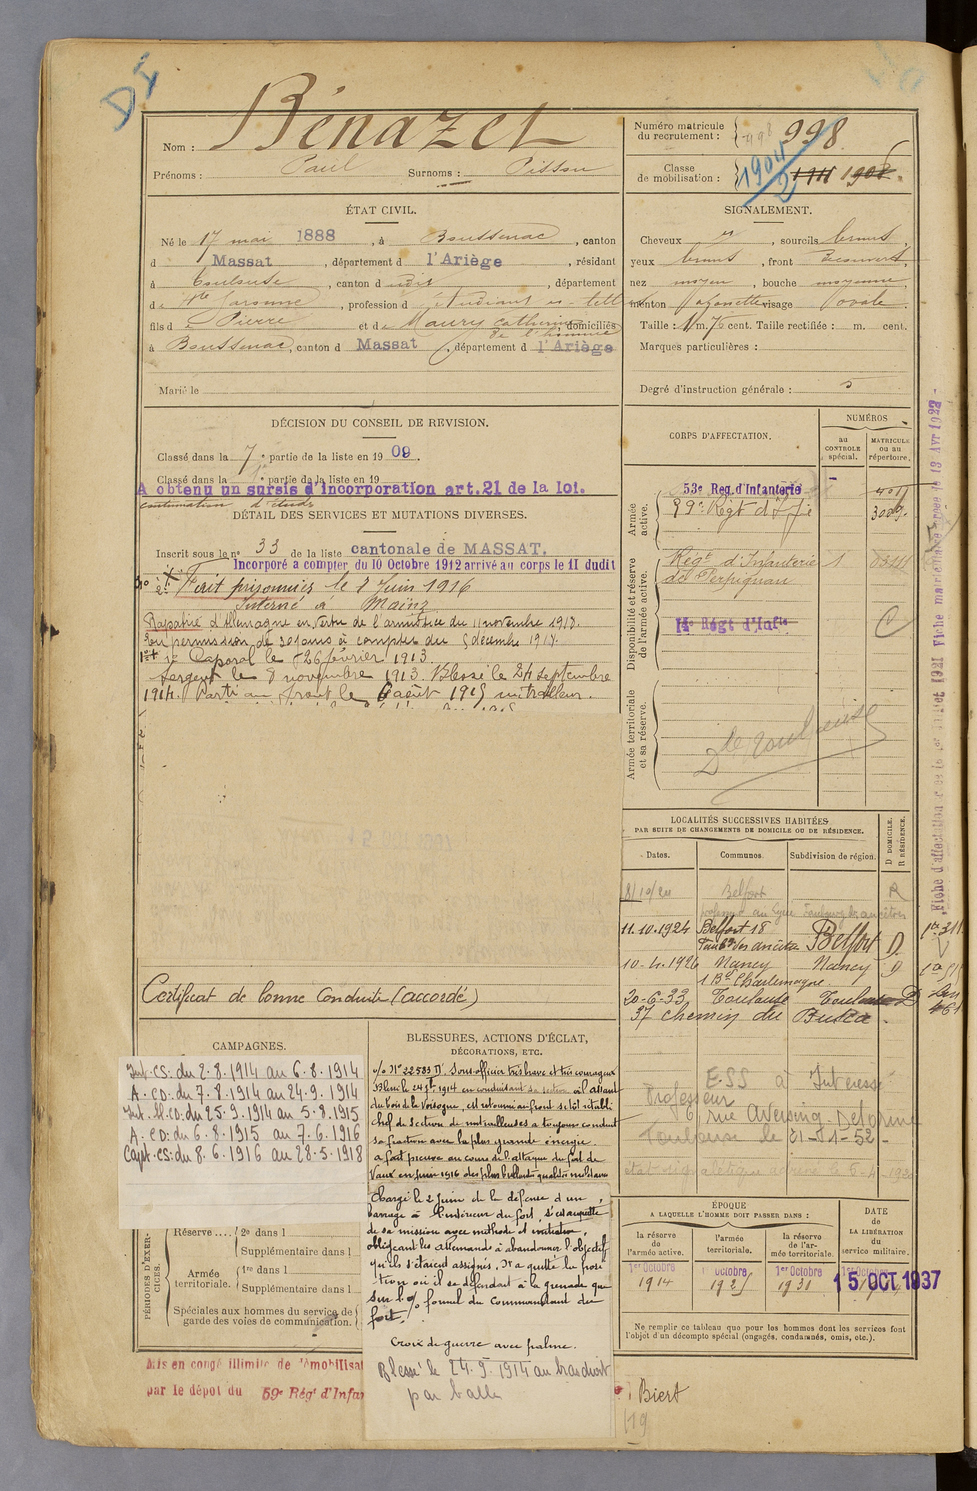 DI
Nom : Bénazet
Prénoms : Paul Surnoms : Pisson
Numéro matricule du recrutement : 998 998.
Classe de mobilisation : 1904/2 1911 1908
ÉTAT CIVIL.
Né le 17 mai 1888, à Boussenac, canton
d Massat, département d l'Ariège, résidant
à Toulouse, canton d udit, département
d e Hte Garonne, profession d Etudiant es-lett
fils d e Pierre et de Maury Catherine de l'homme, domiciliés
à Boussenac, canton d Massat, département d l'Ariège
Marié le
SIGNALEMENT.
Cheveux , sourcils bruns,
yeux bruns, front Découvert,
nez moyen, bouche moyenne,
menton fossette visage ovale.
Taille : 1 m. 76 cent. Taille rectifiée : m. cent.
Marques particulières :
Degré d'instruction générale : 5
DÉCISION DU CONSEIL DE REVISION.
Classé dans la 7e partie de la liste en 1909.
Classé dans la 1e partie de la liste en 19
A obtenu un sursis d'incorporation art. 21 de la loi.
continuation d'études
DÉTAIL DES SERVICES ET MUTATIONS DIVERSES.
Inscrit sous le no 33 de la liste cantonale de MASSAT.
Incorporé à compter du 10 Octobre 1912 arrivé au corps le 11 dudit
Fait prisonnier le 8 Juin 1916
Interné à Mainz
Rapatrié d'Allemagne en vertu de l'armistice du 11 novembre 1918.
En permission de 30 jours à compter du 5 décembre 1918.
Caporal le 26 février 1913.
Sergent le 8 novembre 1913. Blessé le 24 septembre
1914. Parti au front le 6 août 1915 mitrailleur.
Certificat de bonne Conduite (accordé)
CORPS D'AFFECTATION.
NUMÉROS
au CONTROLE spécial.
MATRICULE ou au répertoire.
Armée active.
53e Reg. d'Infanterie
59e Régt d'Ifie
Disponibilité et réserve de l'armée active.
Régt d'Infanterie 1
de Perpignan
14e Régt d'Infie
Armée territoriale et sa réserve.
De Toulouse
Fiche matriculaire
LOCALITÉS SUCCESSIVES HABITÉES
PAR SUITE DE CHANGEMENTS DE DOMICILE OU DE RÉSIDENCE.
Dates. Communes. Subdivision de région. D DOMICILE. R RÉSIDENCE.
8/10/24 Belfort R
professeur au Lycée Faubourg des ancêtres
11.10.1924 Belfort 18 Belfort D.
Faubg des ancêtres
10-4.1926 Nancy Nancy D
1 Bd Charlemagne
20-6-33 Toulouse Toulouse D
37 chemin du Busca.
ESS à Intéressé
Professeur
rue Aversing-Delorme
Toulouse le 21-01-52-
CAMPAGNES.
Int.-CS. du 2.8.1914 au 6.8.1914
A.-CD. du 7.8.1914 au 24.9.1914
Int. CD. du 25.9.1914 au 5.8.1915
A.-CD. du 6.8.1915 au 7.6.1916
Capt.-CS. du 8.6.1916 au 28.5.1918
PÉRIODES D'EXERCICES.
Réserve.... 2e dans l
Supplémentaire dans l
Armée territoriale. 1re dans l
Supplémentaire dans l
Spéciales aux hommes du service de garde des voies de communication.
BLESSURES, ACTIONS D'ÉCLAT,
DÉCORATIONS, ETC.
o/o No 22583 D. Sous officier très brave et très courageux
Blessé le 24 9bre 1914 en conduisant sa section à l'assaut
du bois de la Voisogne, est retourné au front sitôt rétabli
chef de section de mitrailleuses a toujours conduit
sa fraction avec la plus grande énergie.
a fait preuve au cours de l'attaque du fort de
Vaux en juin 1916 des plus brillantes qualités militaires
Chargé le 2 juin de la défense d'un
barrage à l'intérieur du fort, s'est acquitté
de sa mission avec méthode et initiative,
obligeant les allemands à abandonner l'objectif
qu'ils s'étaient assignés, N'a quitté la posi-
tion où il se défendait à la grenade que
sur l'o/o formel du commandant du
fort.
Croix de guerre avec palme.
Blessé le 24.9.1914 au bras droit
par balle
ÉPOQUE
A LAQUELLE L'HOMME DOIT PASSER DANS :
la réserve de l'armée active.
l'armée territoriale.
la réserve de l'armée territoriale.
DATE DE LA LIBÉRATION du service militaire.
1er Octobre 1914
1 Octobre 1921
1er Octobre 1931
1er Octobre
15 OCT 1937
Ne remplir ce tableau que pour les hommes dont les services font
l'objet d'un décompte spécial (engagés, condamnés, omis, etc.).
Mis en congé illimité de démobilisat
par le dépôt du 59e Régt d'Infan
Biert